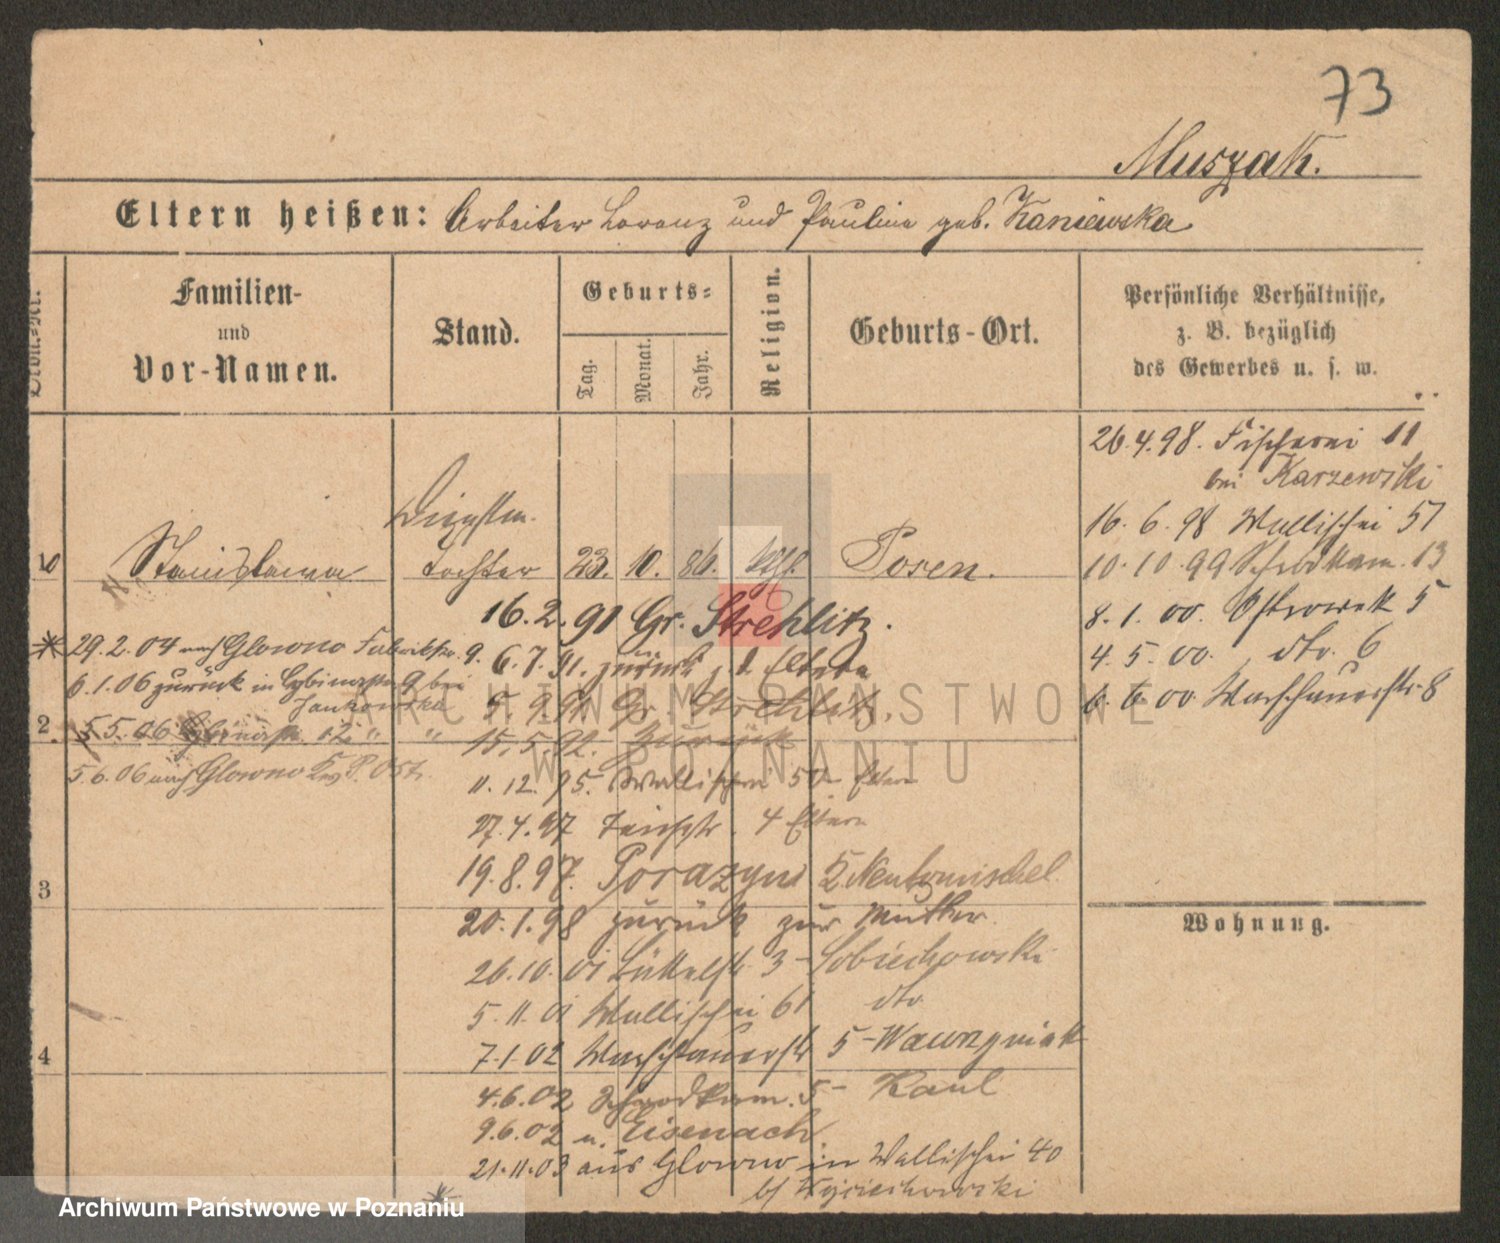 73
Muszak.
Eltern heißen: Arbeiter Lorenz und Pauline geb. Kaniewska
Ordn.=Nr.
Familien-
und
Vor-Namen.
Stand.
Geburts=
Tag.
Monat.
Jahr.
Religion.
Geburts-Ort.
Persönliche Verhältnisse,
z. B. bezüglich
des Gewerbes u. s. w.
26.4.98. Fischerei 11
bei Karzewski
16. 6. 98 Wallischei 57
10. 10. 99 Schrodkam. 13
8. 1. 00. Ostrowek 5
4. 5. 00. dto. 6
6. 6. 00 Warschauerstr. 8
Stanislawa
tochter 23. 10. 86. kgl. Posen.
16. 2. 91 Gr. Strehlitz.
29. 2. 04 nach Glowno
6. 7. 91. zurück z. d. Eltern
6.1.06 zurück in Cybinastr. 9 bei
Jankowska
Gr. Strehlitz.
2.
5.5.06 Cybinastr. 12 " "
15. 5. 92. Zurück
5.6.06 nach Glowno P. Ost.
11. 12. 95. Wallischei 50 Eltern
27. 4. 97 4 Eltern
3
19. 8. 97. Porazyn Neutomischel.
20. 1. 98 zurück zur Mutter.
Wohnung.
26. 10. 01 3 - Sobiechowski
5. 11. 01 Wallischei 61 dto.
4
7. 1. 02 Warschauerstr 5 - Wawrzyniak
4. 6. 02 Schrodkam. 5 - Kaul
9. 6. 02 n. Eisenach
21. 11. 03 aus Glowno in Wallischei 40
b/ Wojciechowski
ARCHIWUM PAŃSTWOWE
W POZNANIU
Archiwum Państwowe w Poznaniu